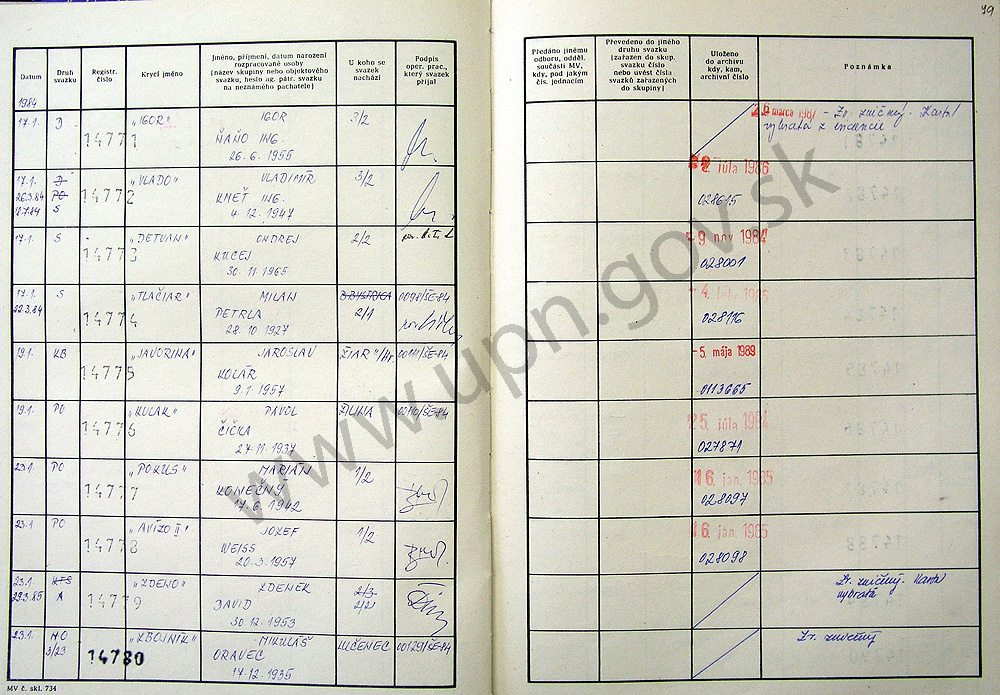 79
Datum
Druh svazku
Registr. číslo
Krycí jméno
Jméno, příjmení, datum narození rozpracované osoby (název skupiny nebo objektového svazku, heslo ag. pátr. svazku na neznámého pachatele)
U koho se svazek nachází
Podpis oper. prac., který svazek přijal
Předáno jinému odboru, odděl. součásti MV, kdy, pod jakým čís. jednacím
Převedeno do jiného druhu svazku (zařazen do skup. svazku číslo nebo uvést čísla svazků zařazených do skupiny)
Uloženo do archivu kdy, kam, archivní číslo
Poznámka
1984
17.1. D 14771 „IGOR" IGOR 3/2
ŇAŇO ING.
26.6.1955
6 marca 1987 - Zv. zničený. Karta
vybratá z evidencie
17.1. D 14772 „VLADO" VLADIMÍR 3/2
26.3.84 PO KMEŤ ING.
S 4.12.1947
júla 1986
028615
17.1. S 14773 „DETVAN" ONDREJ 2/2
KUCEJ
30.11.1965
-9 nov 1984
028001
17.1. S 14774 „TLAČIAR" MILAN B.BYSTRICA 0098/ŠE-84
22.3.84 PETRLA 2/1
28.10.1927
-4.
028116
19.1. KB 14775 „JAVORINA" JAROSLAV ŽIAR n/Hr ŠE-84
KOLÁR
9.1.1957
-5. mája 1989
0113665
19.1. PO 14776 „KULAK" PAVOL ŽILINA ŠE-84
ČIČKA
27.11.1937
25. júla 1984
027871
23.1. PO 14777 „POKUS" MARIÁN 1/2
KONEČNÝ
17.6.1942
16. jan. 1985
028097
23.1 PO 14778 „AVÍZO II" JOZEF 1/2
WEISS
20.3.1957
16. jan. 1985
028098
23.1 14779 „ZDENO" ZDENEK 2/3
29.3.85 A DAVID 2/2
30.12.1953
Zv. zničený. Karta
vybratá
23.1. NO 14780 „ZBOJNÍK" MIKULÁŠ LUČENEC 00129/ŠE-84
3/23 ORAVEC
17.12.1935
Zv. zničený
MV č. skl. 734
www.upn.gov.sk